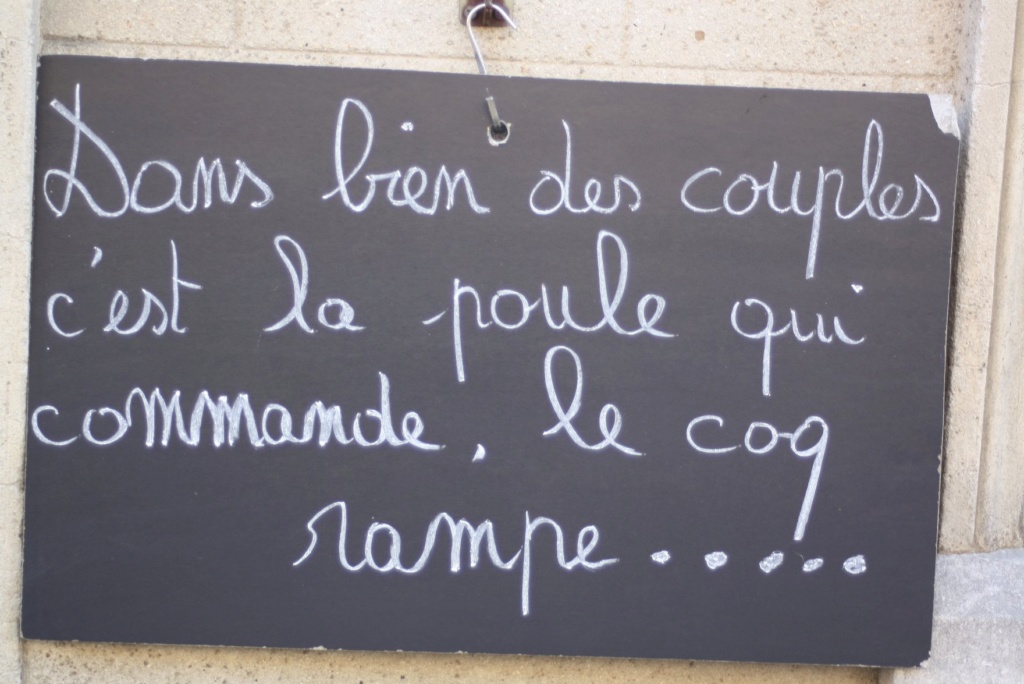 Dans bien des couples
c'est la poule qui
commande, le coq
rampe.....